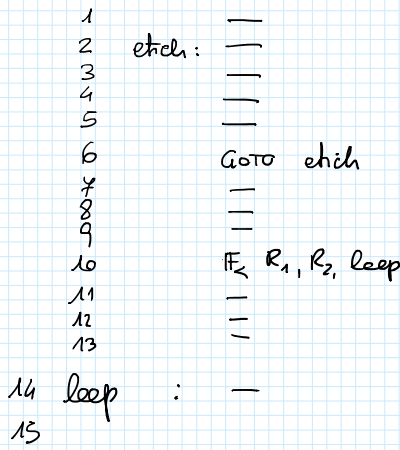 1 —
2 etich: —
3 —
4 —
5 —
6 GOTO etich
7 —
8 —
9 —
10 IF< R1, R2, loop
11 —
12 —
13 —
14 loop : —
15